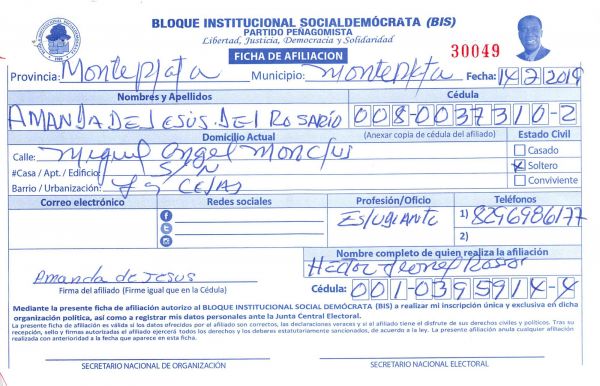 BLOQUE INSTITUCIONAL SOCIALDEMÓCRATA (BIS)
PARTIDO PEÑAGOMISTA
Libertad, Justicia, Democracia y Solidaridad
FICHA DE AFILIACION
30049
Provincia: Monte plata Municipio: Monteplata Fecha: 14 2 2019
Nombres y Apellidos Cédula
AMANDA DE JESÚS. DEL ROSARIO 008-0037310-2
Domicilio Actual (Anexar copia de cédula del afiliado) Estado Civil
Calle: Miguel Angel Monclus
Casado
#Casa / Apt. / Edificio: S/N
Soltero
Barrio / Urbanización:
Conviviente
Correo electrónico Redes sociales Profesión/Oficio Teléfonos
Estudiante 1) 8296986177
2)
Nombre completo de quien realiza la afiliación
Hector
Amanda de Jesus
Firma del afiliado (Firme igual que en la Cédula) Cédula: 001-0395914-4
Mediante la presente ficha de afiliación autorizo al BLOQUE INSTITUCIONAL SOCIAL DEMÓCRATA (BIS) a realizar mi inscripción única y exclusiva en dicha
organización política, así como a registrar mis datos personales ante la Junta Central Electoral.
La presente ficha de afiliación es válida si los datos ofrecidos por el afiliado son correctos, las declaraciones veraces y si el afiliado tiene el disfrute de sus derechos civiles y políticos. Tras su
recepción, sello y firmas autorizadas el afiliado ejercerá todos los derechos y los deberes estatutariamente sancionados, de acuerdo a la ley. La presente afiliación anula cualquier afiliación
realizada con anterioridad a la fecha que aparece en esta ficha.
SECRETARIO NACIONAL DE ORGANIZACIÓN SECRETARIO NACIONAL ELECTORAL